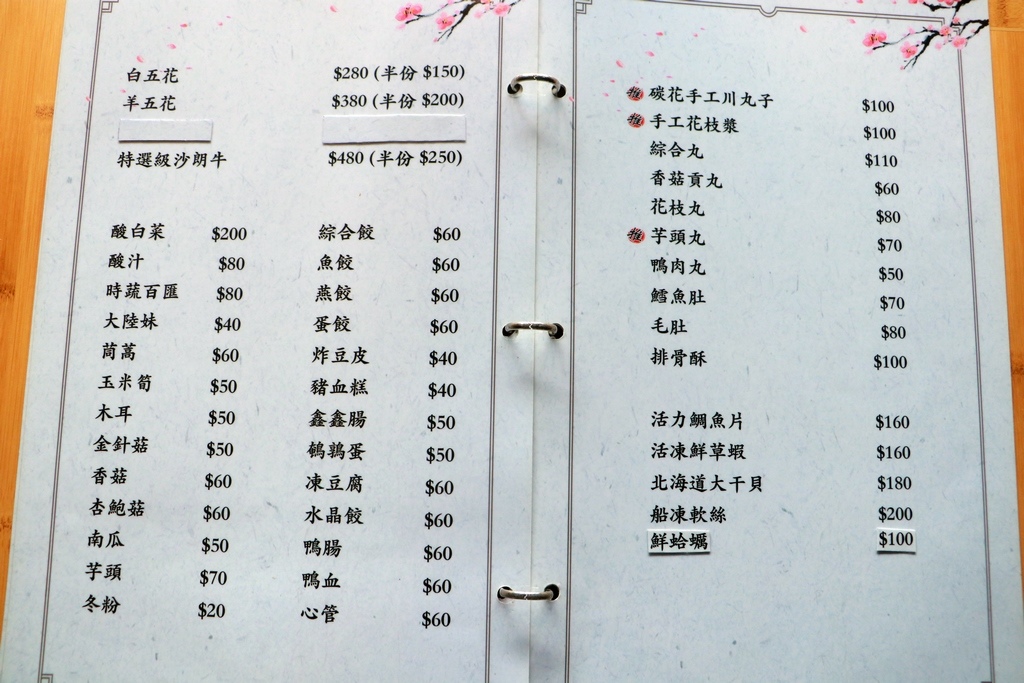 白五花 $280 (半份 $150)
羊五花 $380 (半份 $200)
特選級沙朗牛 $480 (半份 $250)
酸白菜 $200
酸汁 $80
時蔬百匯 $80
大陸妹 $40
茼蒿 $60
玉米筍 $50
木耳 $50
金針菇 $50
香菇 $60
杏鮑菇 $60
南瓜 $50
芋頭 $70
冬粉 $20
綜合餃 $60
魚餃 $60
燕餃 $60
蛋餃 $60
炸豆皮 $40
豬血糕 $40
鑫鑫腸 $50
鵪鶉蛋 $50
凍豆腐 $60
水晶餃 $60
鴨腸 $60
鴨血 $60
心管 $60
推 碳花手工川丸子 $100
推 手工花枝漿 $100
綜合丸 $110
香菇貢丸 $60
花枝丸 $80
推 芋頭丸 $70
鴨肉丸 $50
鱈魚肚 $70
毛肚 $80
排骨酥 $100
活力鯛魚片 $160
活凍鮮草蝦 $160
北海道大干貝 $180
船凍軟絲 $200
鮮蛤蠣 $100